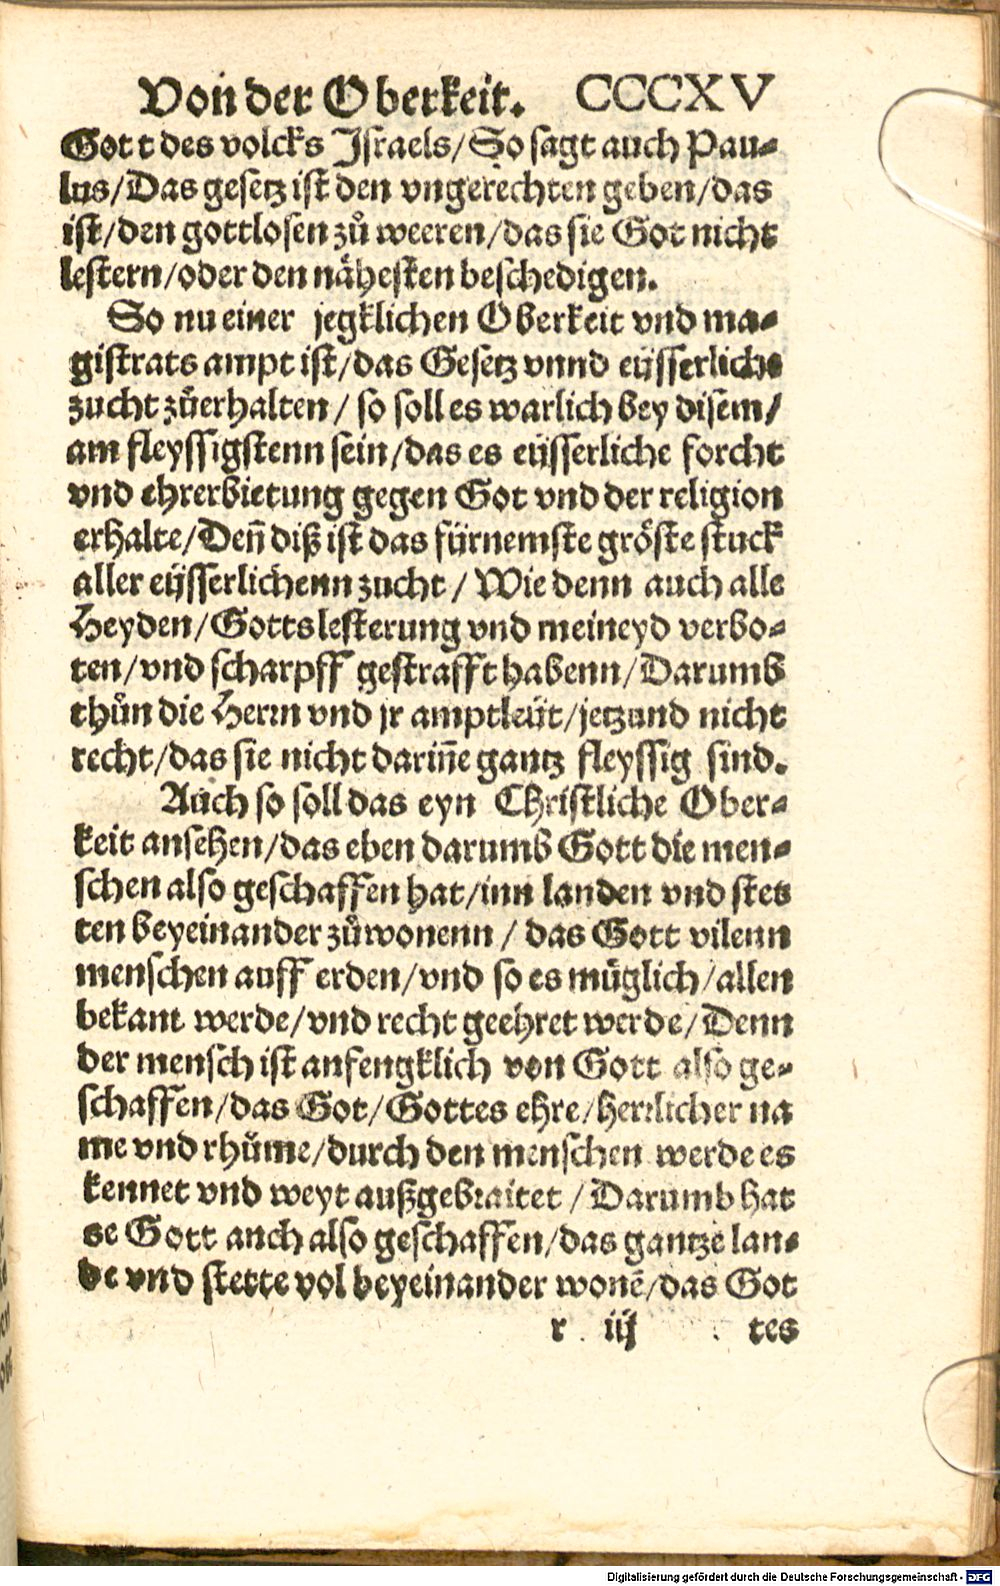 Von der Oberkeit. CCCXV
Gott des volcks Israels/So sagt auch Pau-
lus/Das gesetz ist den vngerechten geben/das
ist/den gottlosen zů weeren/das sie Got nicht
lestern/oder den nähesten beschedigen.
So nu einer jegklichen Oberkeit vnd ma-
gistrats ampt ist/das Gesetz vnnd eüsserliche
zucht zůerhalten/ so soll es warlich bey disem/
am fleyssigstenn sein/das es eüsserliche forcht
vnd ehrerbietung gegen Got vnd der religion
erhalte/Deñ diß ist das fürnemste gröste stuck
aller eüsserlichenn zucht/ Wie denn auch alle
Heyden/Gottslesterung vnd meineyd verbo-
ten/vnd scharpff gestrafft habenn/Darumb
thůn die Herrn vnd jr amptleüt/jetzund nicht
recht/das sie nicht dariñe gantz fleyssig sind.
Auch so soll das eyn Christliche Ober-
keit ansehen/das eben darumb Gott die men-
schen also geschaffen hat/inn landen vnd stet
ten beyeinander zůwonenn/ das Gott vilenn
menschen auff erden/vnd so es müglich/allen
bekant werde/vnd recht geehret werde/Denn
der mensch ist anfengklich von Gott also ge-
schaffen/das Got/Gottes ehre/herrlicher na
me vnd rhůme/durch den menschen werde es
kennet vnd weyt außgebraitet/ Darumb hat
se Gott anch also geschaffen/das gantze lan-
de vnd stette vol beyeinander wonē/das Got
r iij tes
Digitalisierung gefördert durch die Deutsche Forschungsgemeinschaft - DFG